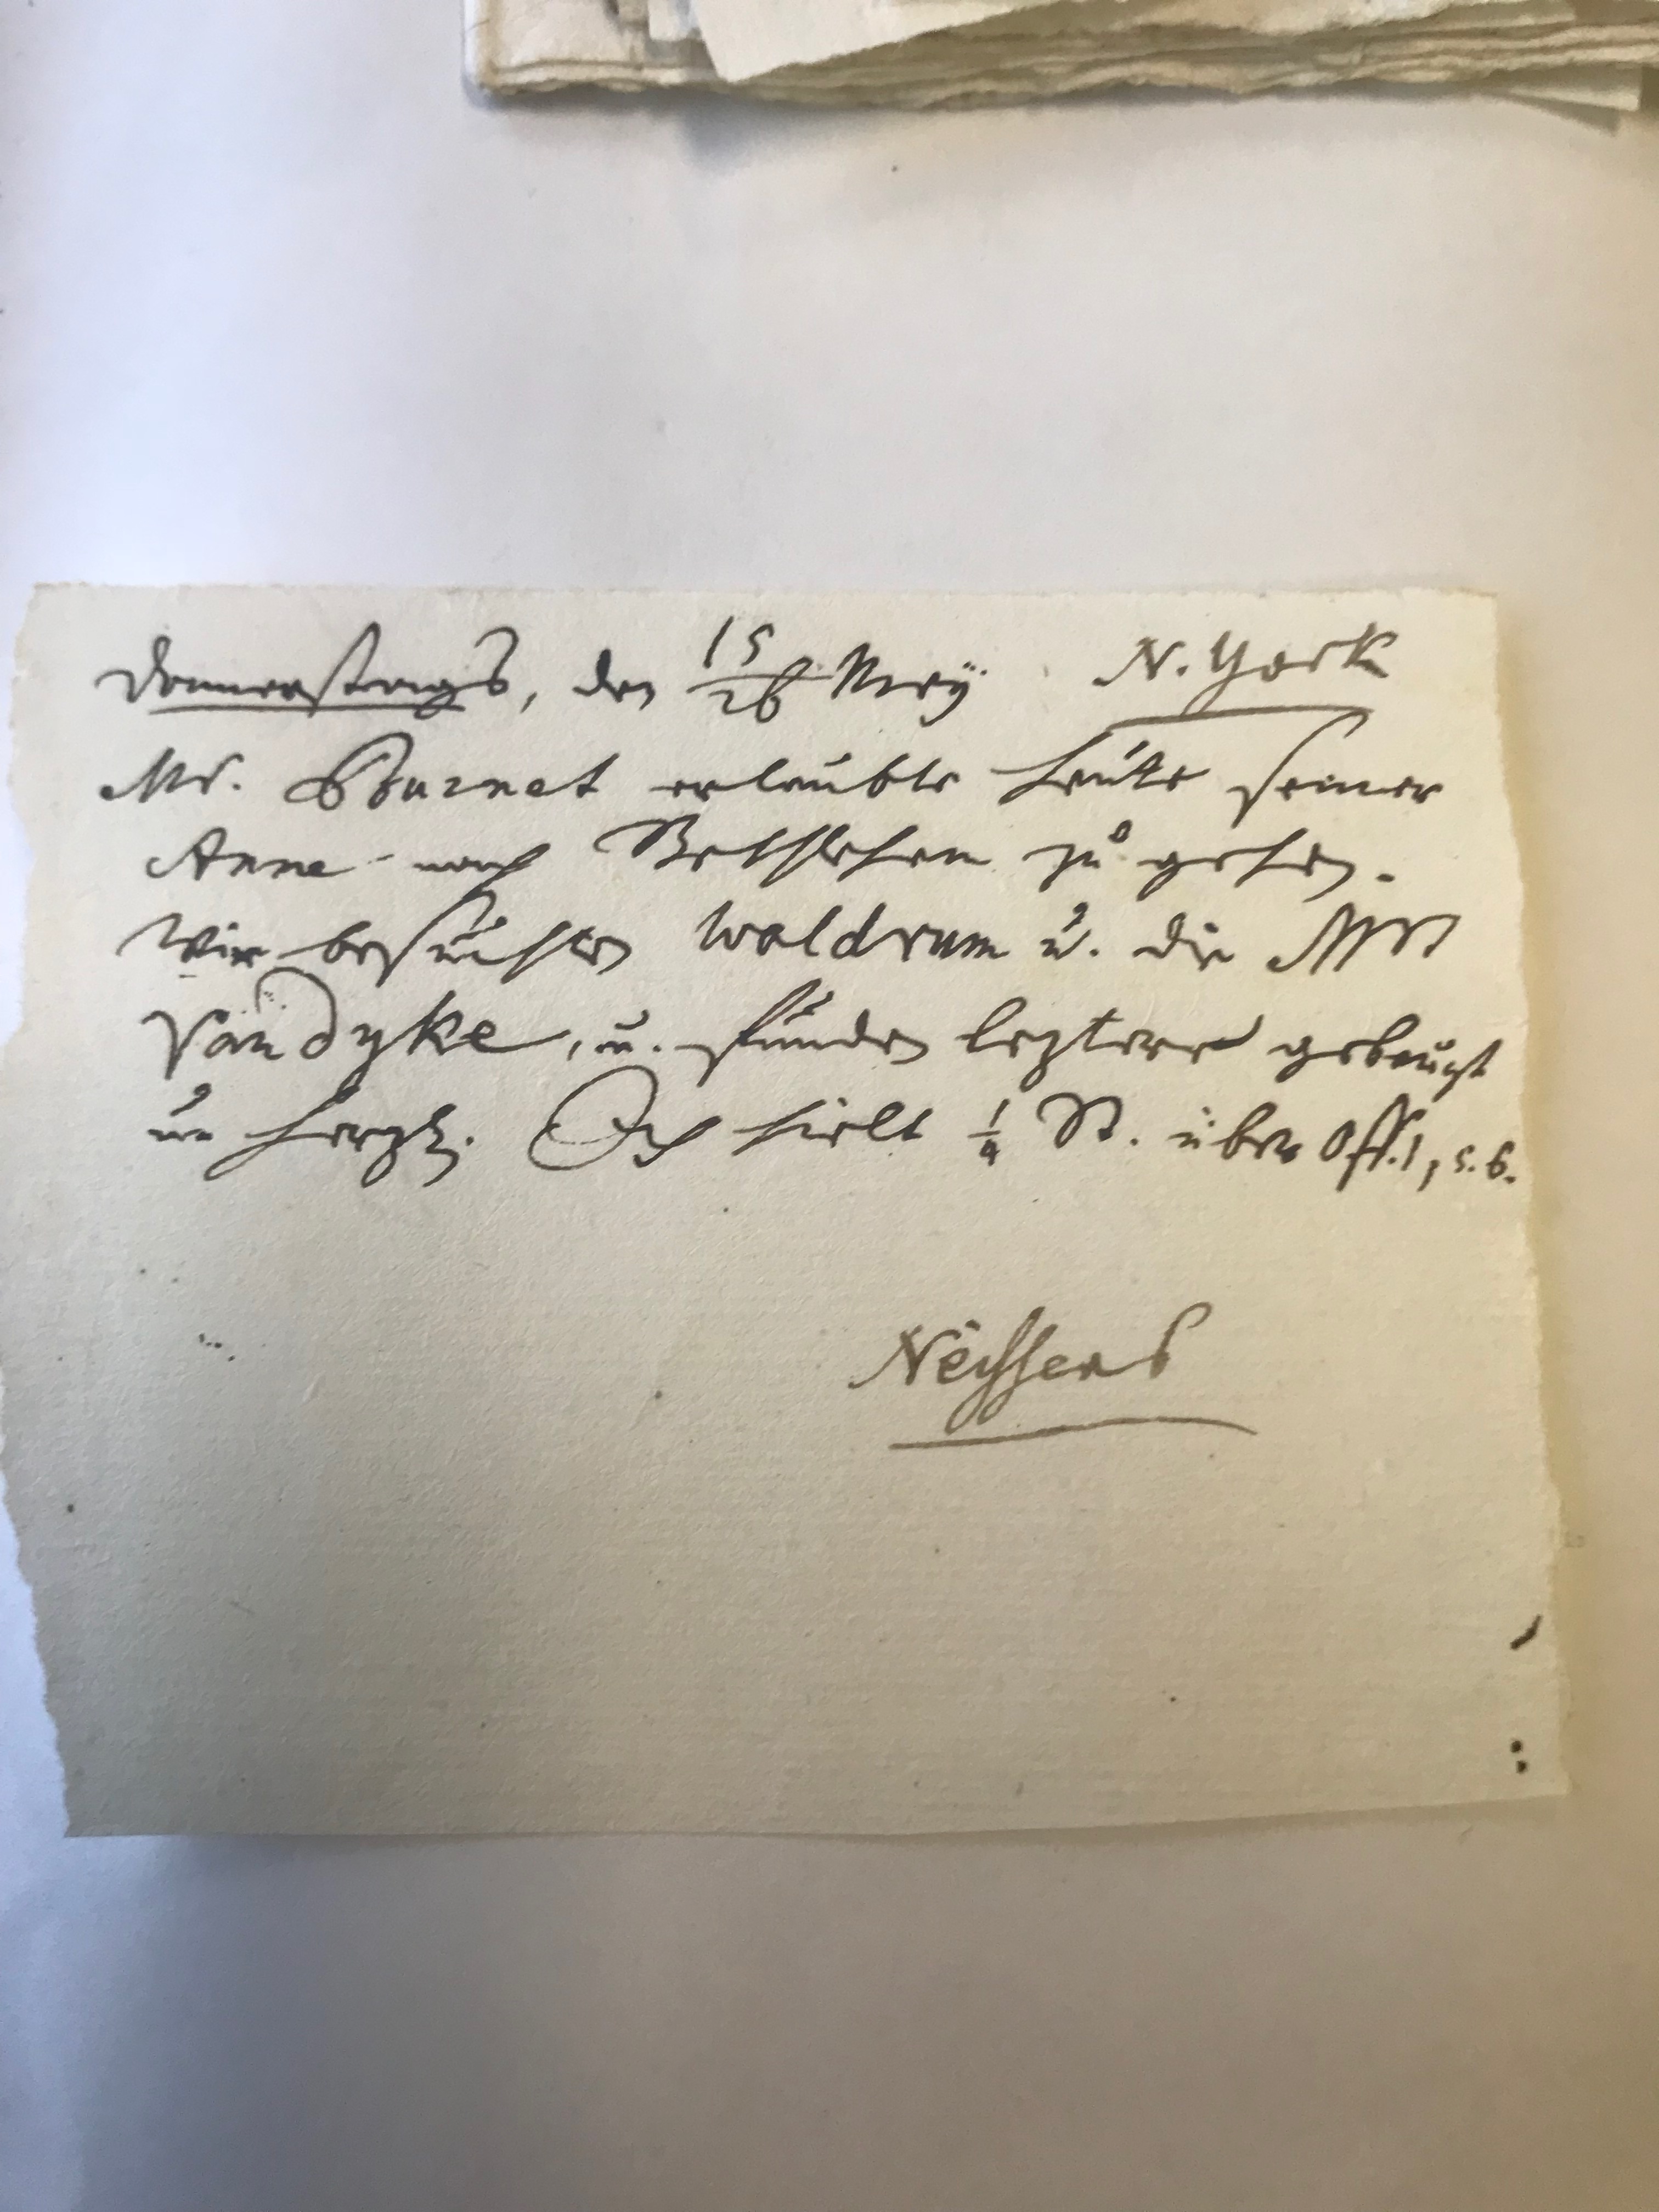 Donnerstags, den 15/26 Mey N. York
Mr. Burnet erlaubte heute seiner
Anne nach Bethlehem zu gehen.
Wir besuchten Waldrum u. die Mrs
Vandyke, u. funden leztere gebeugt
u. herzl. Ich hielt 1/4 St. über Off. 1, 5. 6.
Neissers